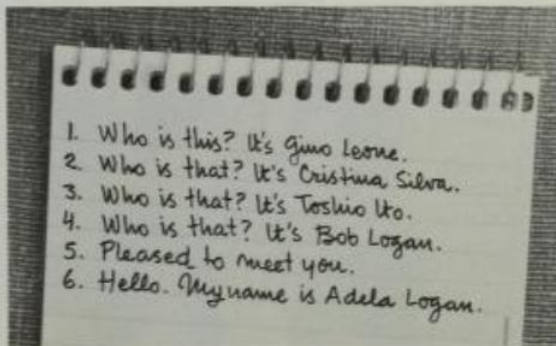 1. Who is this? It's Gino Leone.
2. Who is that? It's Cristina Silva.
3. Who is that? It's Toshio Ito.
4. Who is that? It's Bob Logan.
5. Pleased to meet you.
6. Hello. My name is Adela Logan.